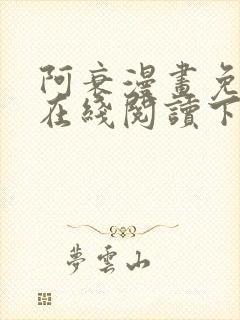 阿衰漫畫免
在綫閱讀下
夢雲山